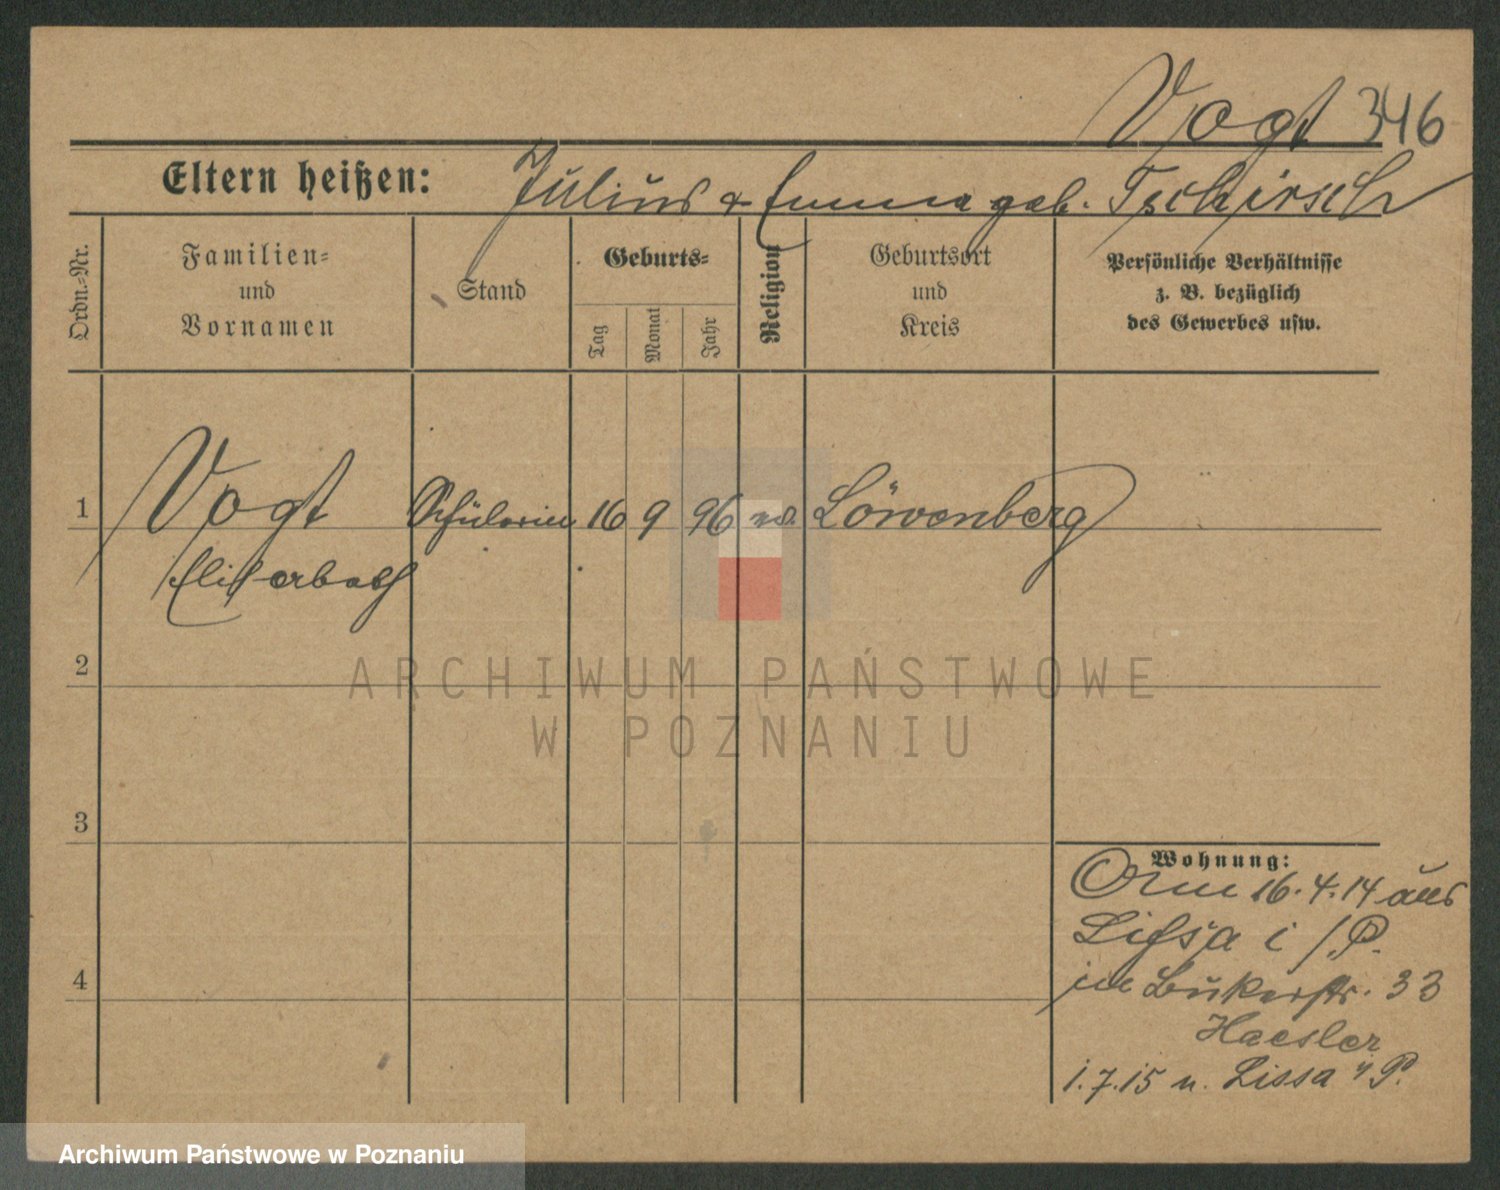 Vogt 346
Eltern heißen: Julius & Emma geb. Tschirsch
Ordn.-Nr.
Familien-
und
Vornamen
Stand
Geburts-
Tag
Monat
Jahr
Religion
Geburtsort
und
Kreis
Persönliche Verhältnisse
z. B. bezüglich
des Gewerbes usw.
1 Vogt Schülerin 16 9 96 ev. Löwenberg
Elisabeth
2
3
4
Wohnung:
16.4.14 aus
Lissa i/P.
in Bukerstr. 33
Haesler
1.7.15 n. Lissa i/P.
ARCHIWUM PAŃSTWOWE
W POZNANIU
Archiwum Państwowe w Poznaniu